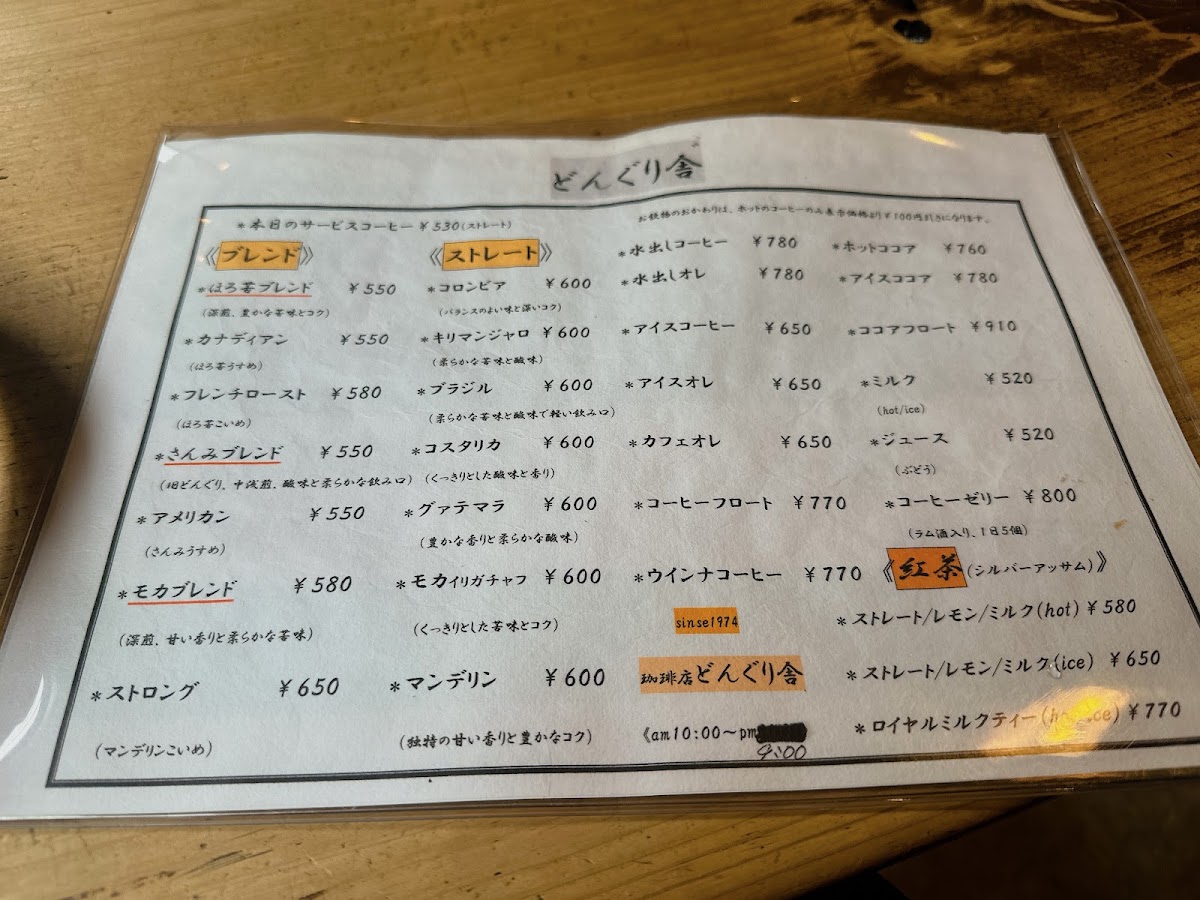 どんぐり舎
お飲物のおかわりは、ホットのコーヒーのみ表示価格より¥100円引きになります。
*本日のサービスコーヒー¥530(ストレート)
《ブレンド》
*ほろ苦ブレンド ¥550
(深煎、豊かな苦味とコク)
*カナディアン ¥550
(ほろ苦うすめ)
*フレンチロースト ¥580
(ほろ苦こいめ)
*さんみブレンド ¥550
(旧どんぐり、中浅煎、酸味と柔らかな飲み口)
*アメリカン ¥550
(さんみうすめ)
*モカブレンド ¥580
(深煎、甘い香りと柔らかな苦味)
*ストロング ¥650
(マンデリンこいめ)
《ストレート》
*コロンビア ¥600
(バランスのよい味と深いコク)
*キリマンジャロ ¥600
(柔らかな苦味と酸味)
*ブラジル ¥600
(柔らかな苦味と酸味で軽い飲み口)
*コスタリカ ¥600
(くっきりとした酸味と香り)
*グァテマラ ¥600
(豊かな香りと柔らかな酸味)
*モカイリガチャフ ¥600
(くっきりとした苦味とコク)
*マンデリン ¥600
(独特の甘い香りと豊かなコク)
*水出しコーヒー ¥780
*水出しオレ ¥780
*アイスコーヒー ¥650
*アイスオレ ¥650
*カフェオレ ¥650
*コーヒーフロート ¥770
*ウインナコーヒー ¥770
sinse1974
珈琲店どんぐり舎
《am10:00〜pm
9:00
*ホットココア ¥760
*アイスココア ¥780
*ココアフロート ¥910
*ミルク ¥520
(hot/ice)
*ジュース ¥520
(ぶどう)
*コーヒーゼリー ¥800
(ラム酒入り、1日5個)
《紅茶(シルバーアッサム)》
*ストレート/レモン/ミルク(hot) ¥580
*ストレート/レモン/ミルク(ice) ¥650
*ロイヤルミルクティー(hot/ice) ¥770